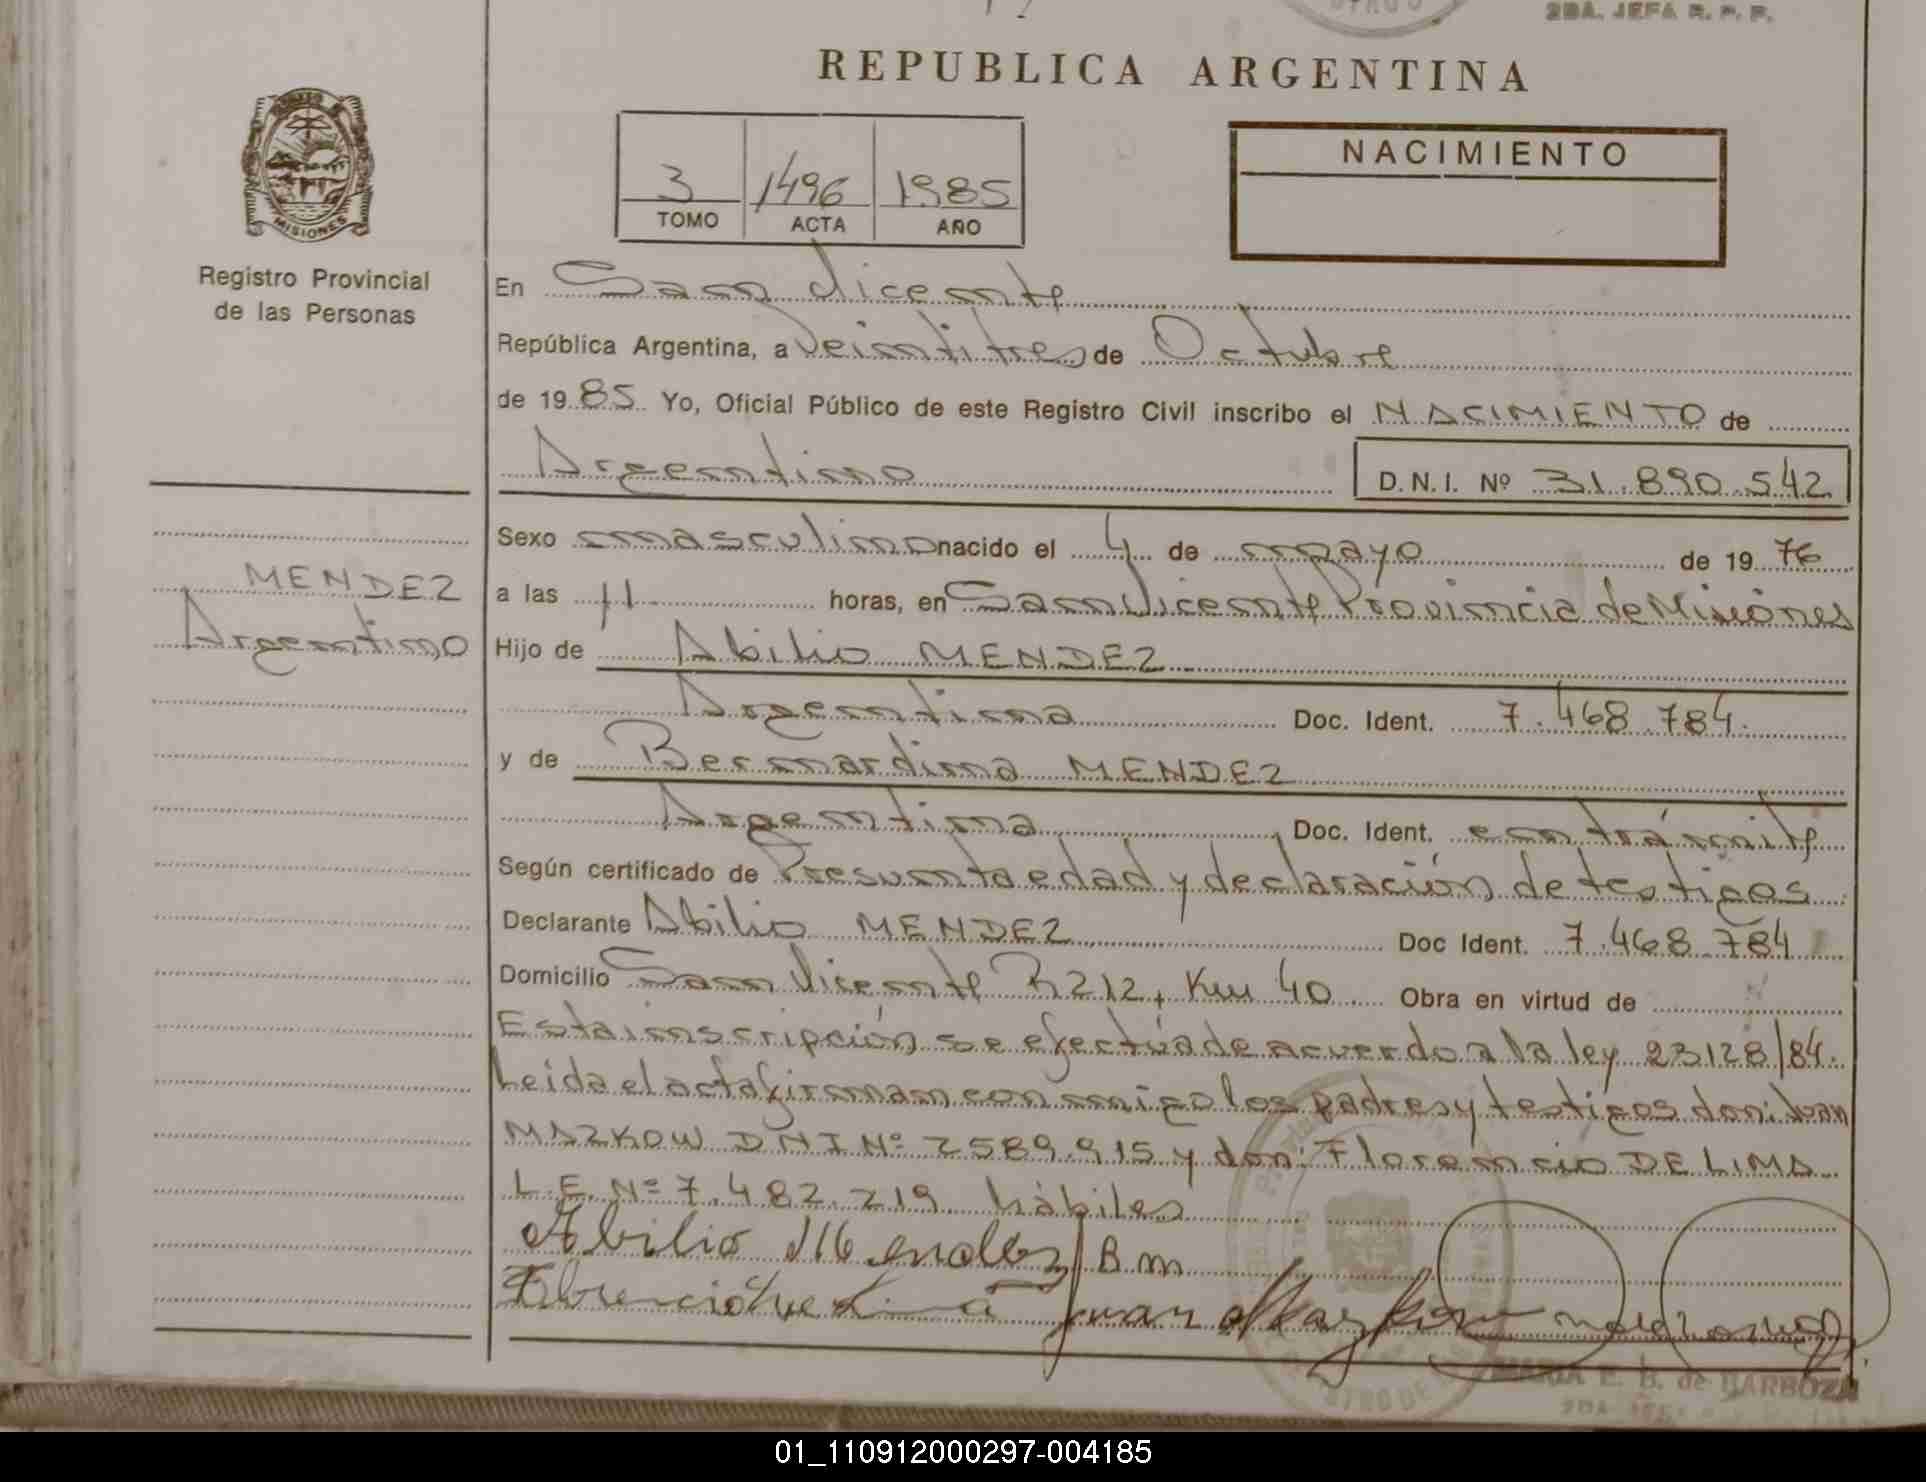 2DA. JEFA R. P. P.
REPUBLICA ARGENTINA
MISIONES
Registro Provincial
de las Personas
3 1496 1985
TOMO ACTA AÑO
NACIMIENTO
En San Vicente
República Argentina, a Veintitres de Octubre
de 19 85 Yo, Oficial Público de este Registro Civil inscribo el NACIMIENTO de
Argentino D.N.I. Nº 31.890.542
MENDEZ
Argentino
Sexo masculino nacido el 4 de mayo de 19 76
a las 11 horas, en San Vicente Provincia de Misiones
Hijo de Abilio MENDEZ
Argentina Doc. Ident. 7.468.784.
y de Bernardina MENDEZ
Argentina Doc. Ident. en trámite
Según certificado de Presunta edad y declaración de testigos
Declarante Abilio MENDEZ Doc Ident. 7.468.784
Domicilio San Vicente R 212, Km 40 Obra en virtud de
Esta inscripción se efectúa de acuerdo a la ley 23128/84.
Leida el acta firman conmigo los padres y testigos don: Juan
MAZKOW DNI Nº 2589.915 y don: Florencio DE LIMA
L.E. Nº 7.482.219 hábiles
Abilio Mendez B m
Florencio de Lima Juan Mazkow
MARIA E. B. de BARBOZA
01_110912000297-004185